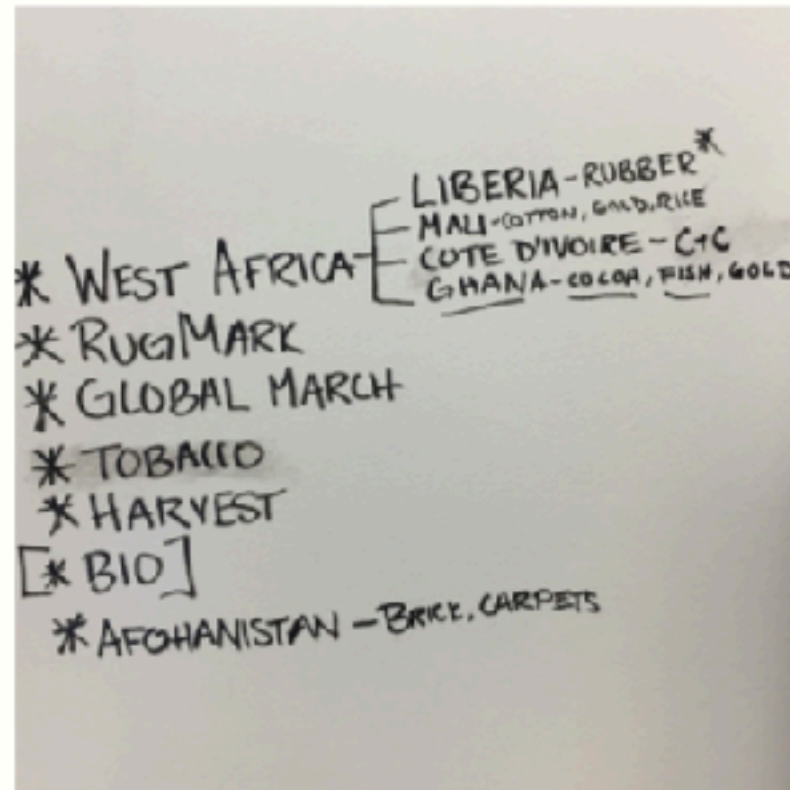 LIBERIA-RUBBER*
MALI-COTTON, GOLD, RICE
COTE D'IVOIRE - C+C
GHANA-COCOA, FISH, GOLD
* WEST AFRICA
* RUGMARK
* GLOBAL MARCH
* TOBACCO
* HARVEST
[* BIO]
* AFGHANISTAN - BRICK, CARPETS